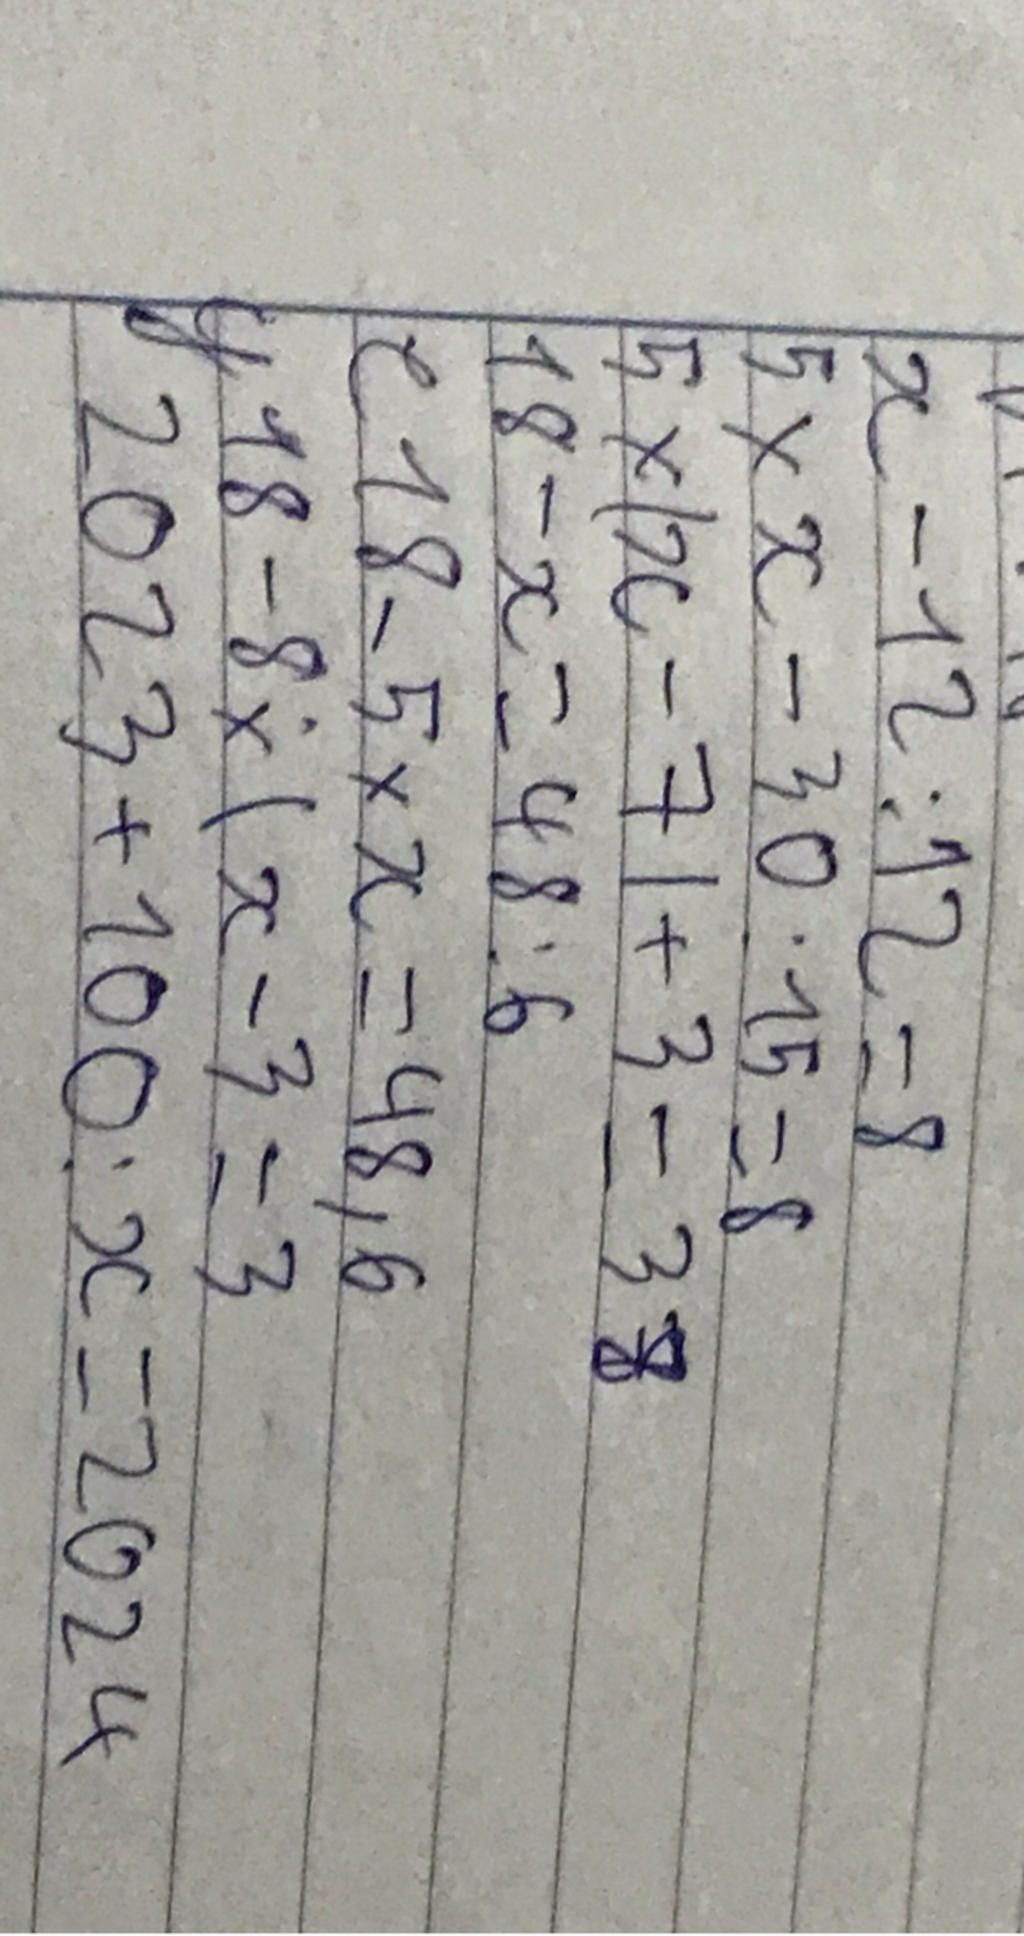 x - 12 : 12 = 8
5 x x - 30 : 15 = 8
5 x (x - 7) + 3 = 38
18 - x = 48 : 6
e 18 - 5 x x = 48,6
y, 18 - 8 x (x - 3 = 3
y 2023 + 100 : x = 2024